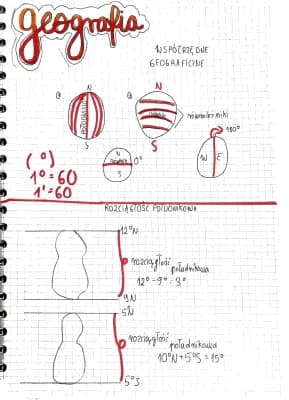 geografia
WSPÓŁRZĘDNE
GEOGRAFICZNE
N
N
POŁUDNIKI
równoleżniki
S
S
N
0°
S
180°
W E
(°)
1° = 60
1' = 60
ROZCIĄGŁOŚĆ POŁUDNIKOWA
12°N
rozciągłość
południkowa
12° - 9° = 3°
9N
5°N
rozciągłość
południkowa
10°N + 5°S = 15°
5°S